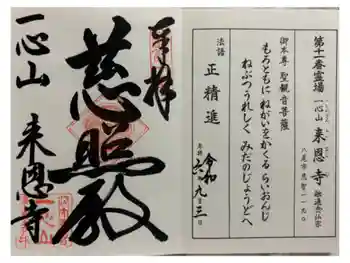 第十一番霊場
一心山 来恩寺 融通念仏宗
八尾市恩智一一九〇
御本尊 聖観音菩薩
もろともに ねがいをかくる らいおんじ
ねぶつうれしく みだのじょうどへ
法話
正精進
令和六年九月三日
奉拝
慈照殿
一心山 来恩寺